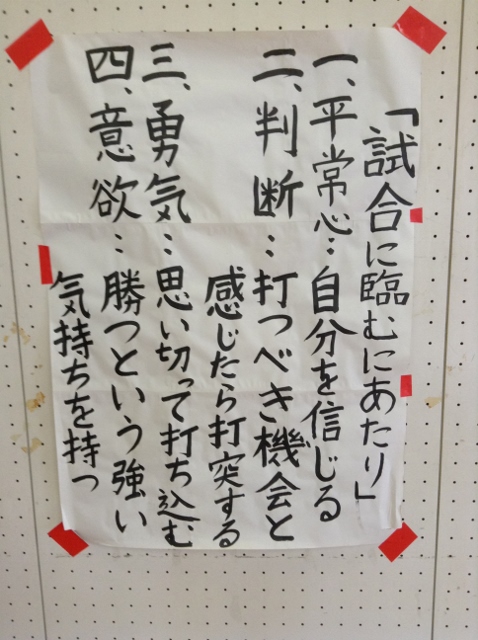 「試合に臨むにあたり」
一、平常心…自分を信じる
二、判断…打つべき機会と
感じたら打突する
三、勇気…思い切って打ち込む
四、意欲…勝つという強い
気持ちを持つ